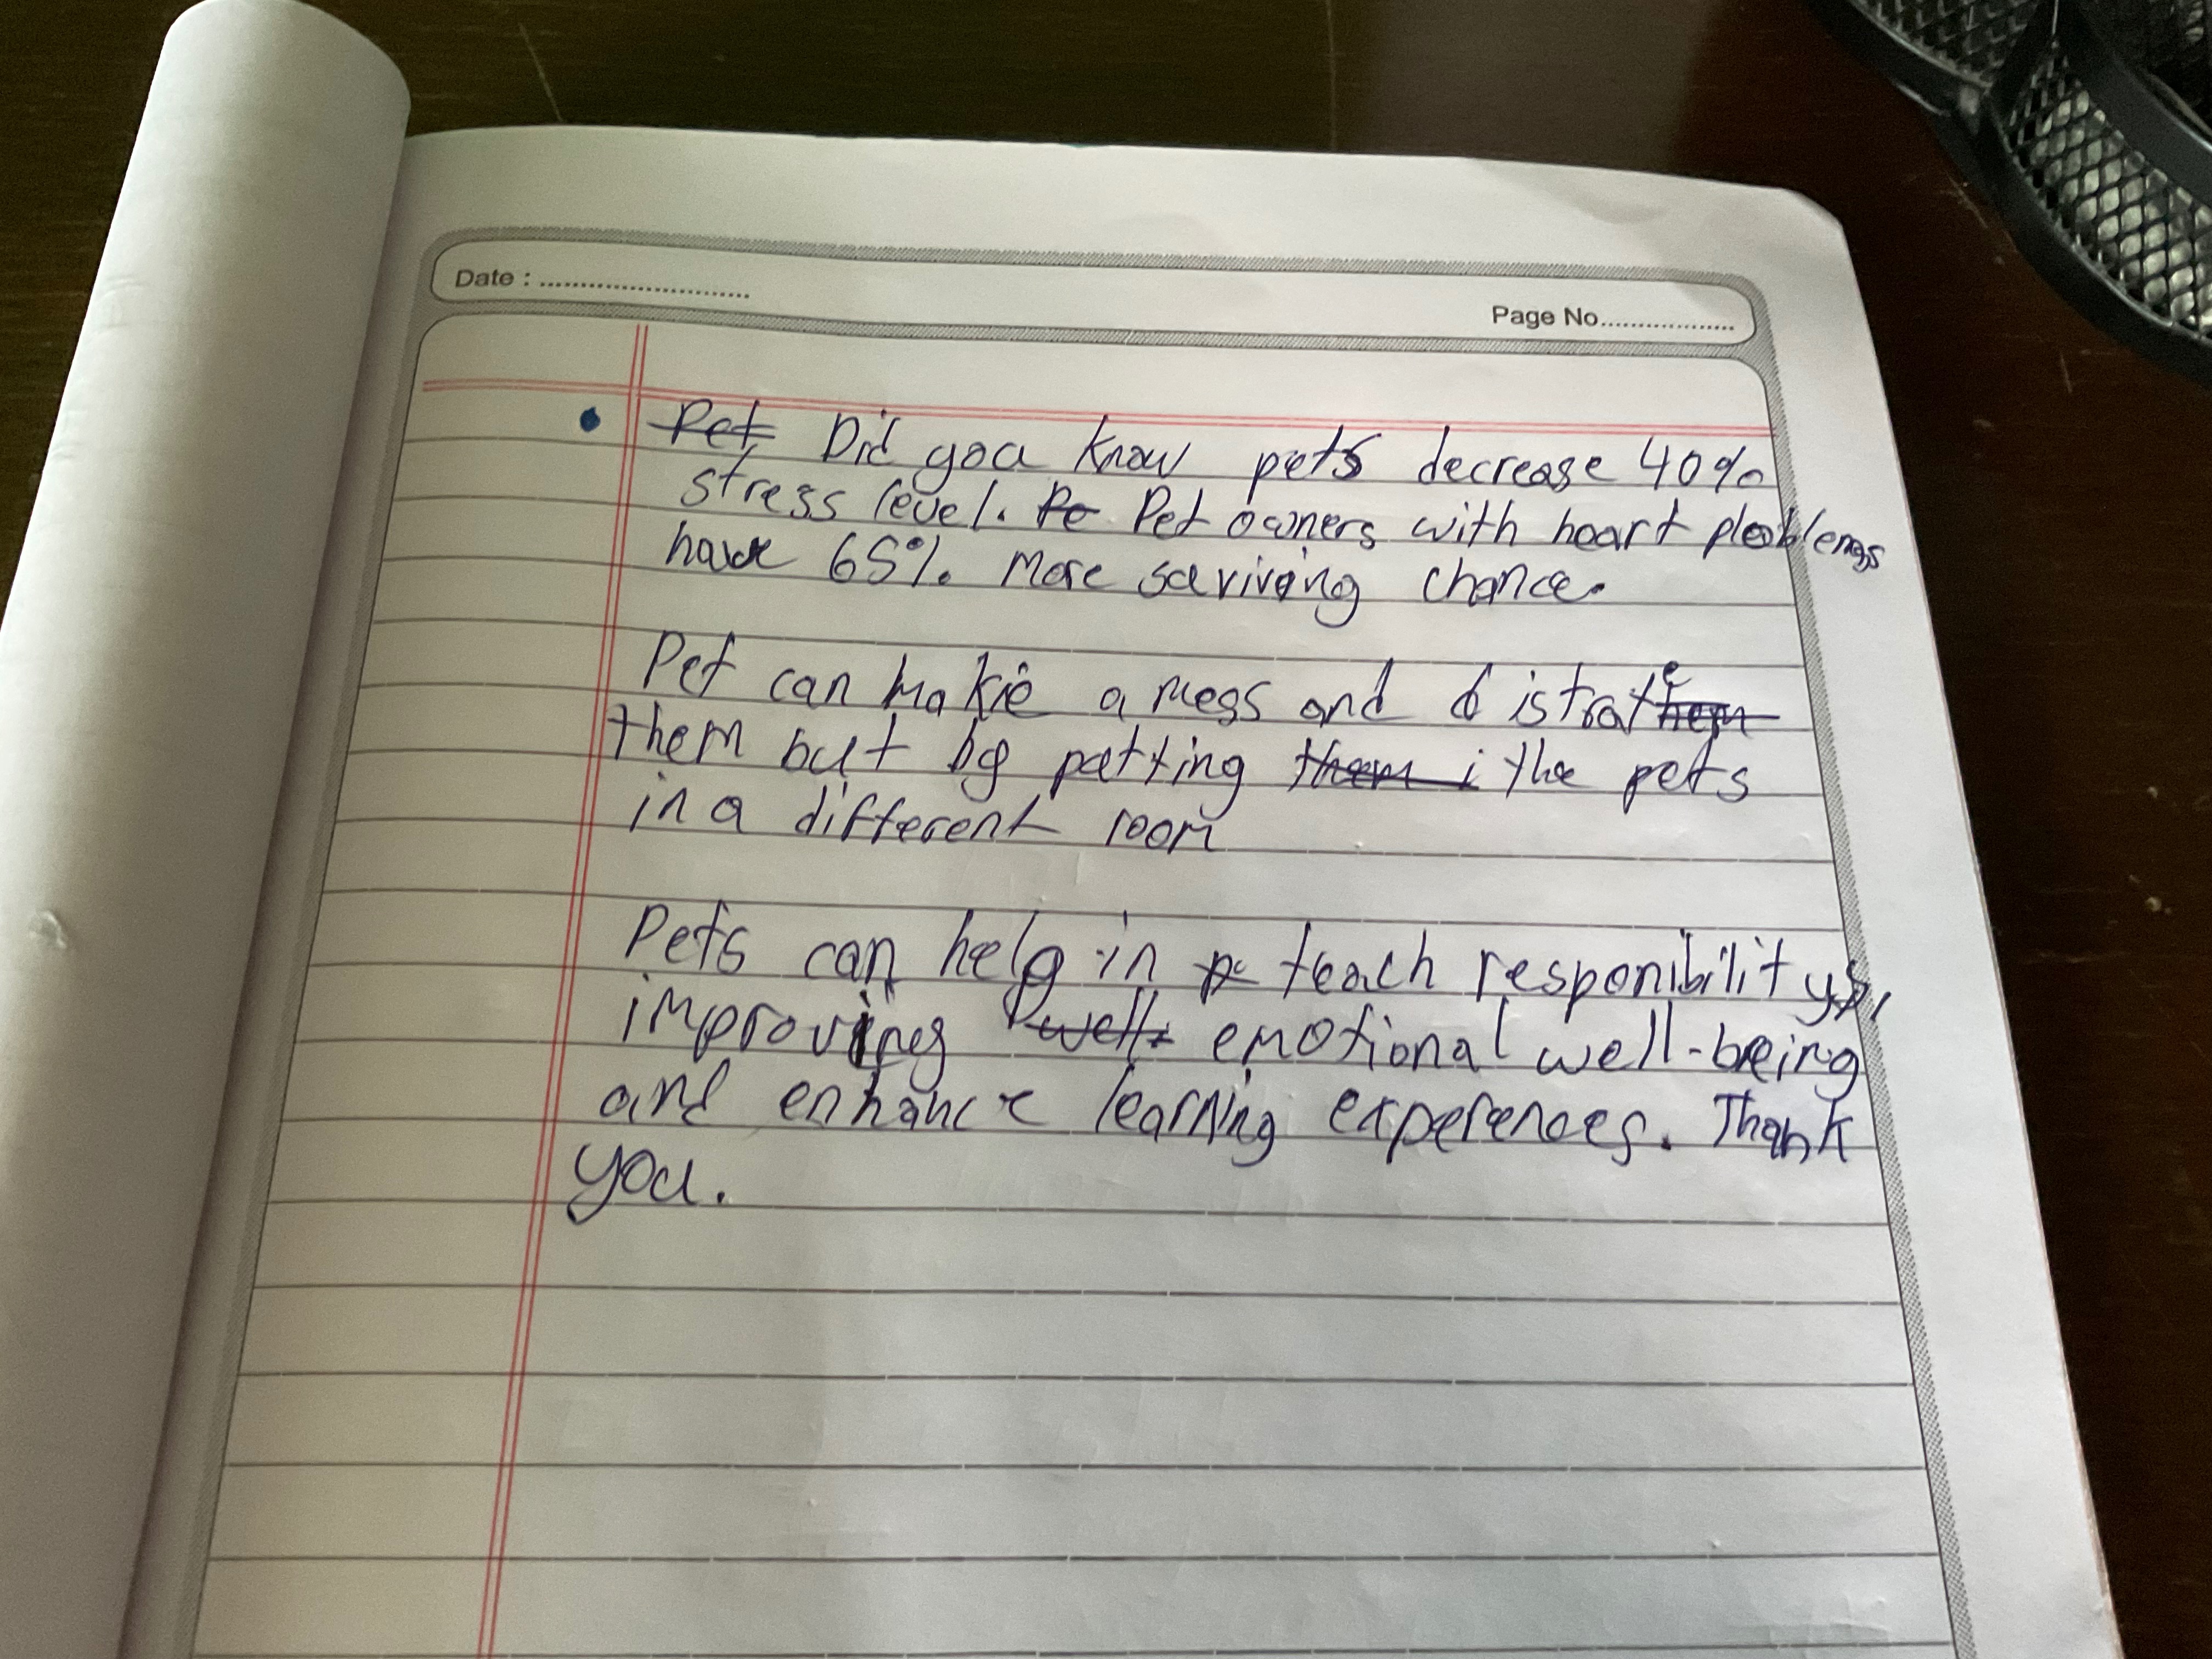 Date : ..........................
Page No..................
• Pet Did you know pets decrease 40%
stress level. Pe Pet owners with heart ploblems
have 65% More surviving chance.
Pet can make a mess and distrate
them but by putting them i the pets
in a different room
Pets can help in teach responibilitys,
improving well- emotional well-being
and enhance learning experences. Thank
you.